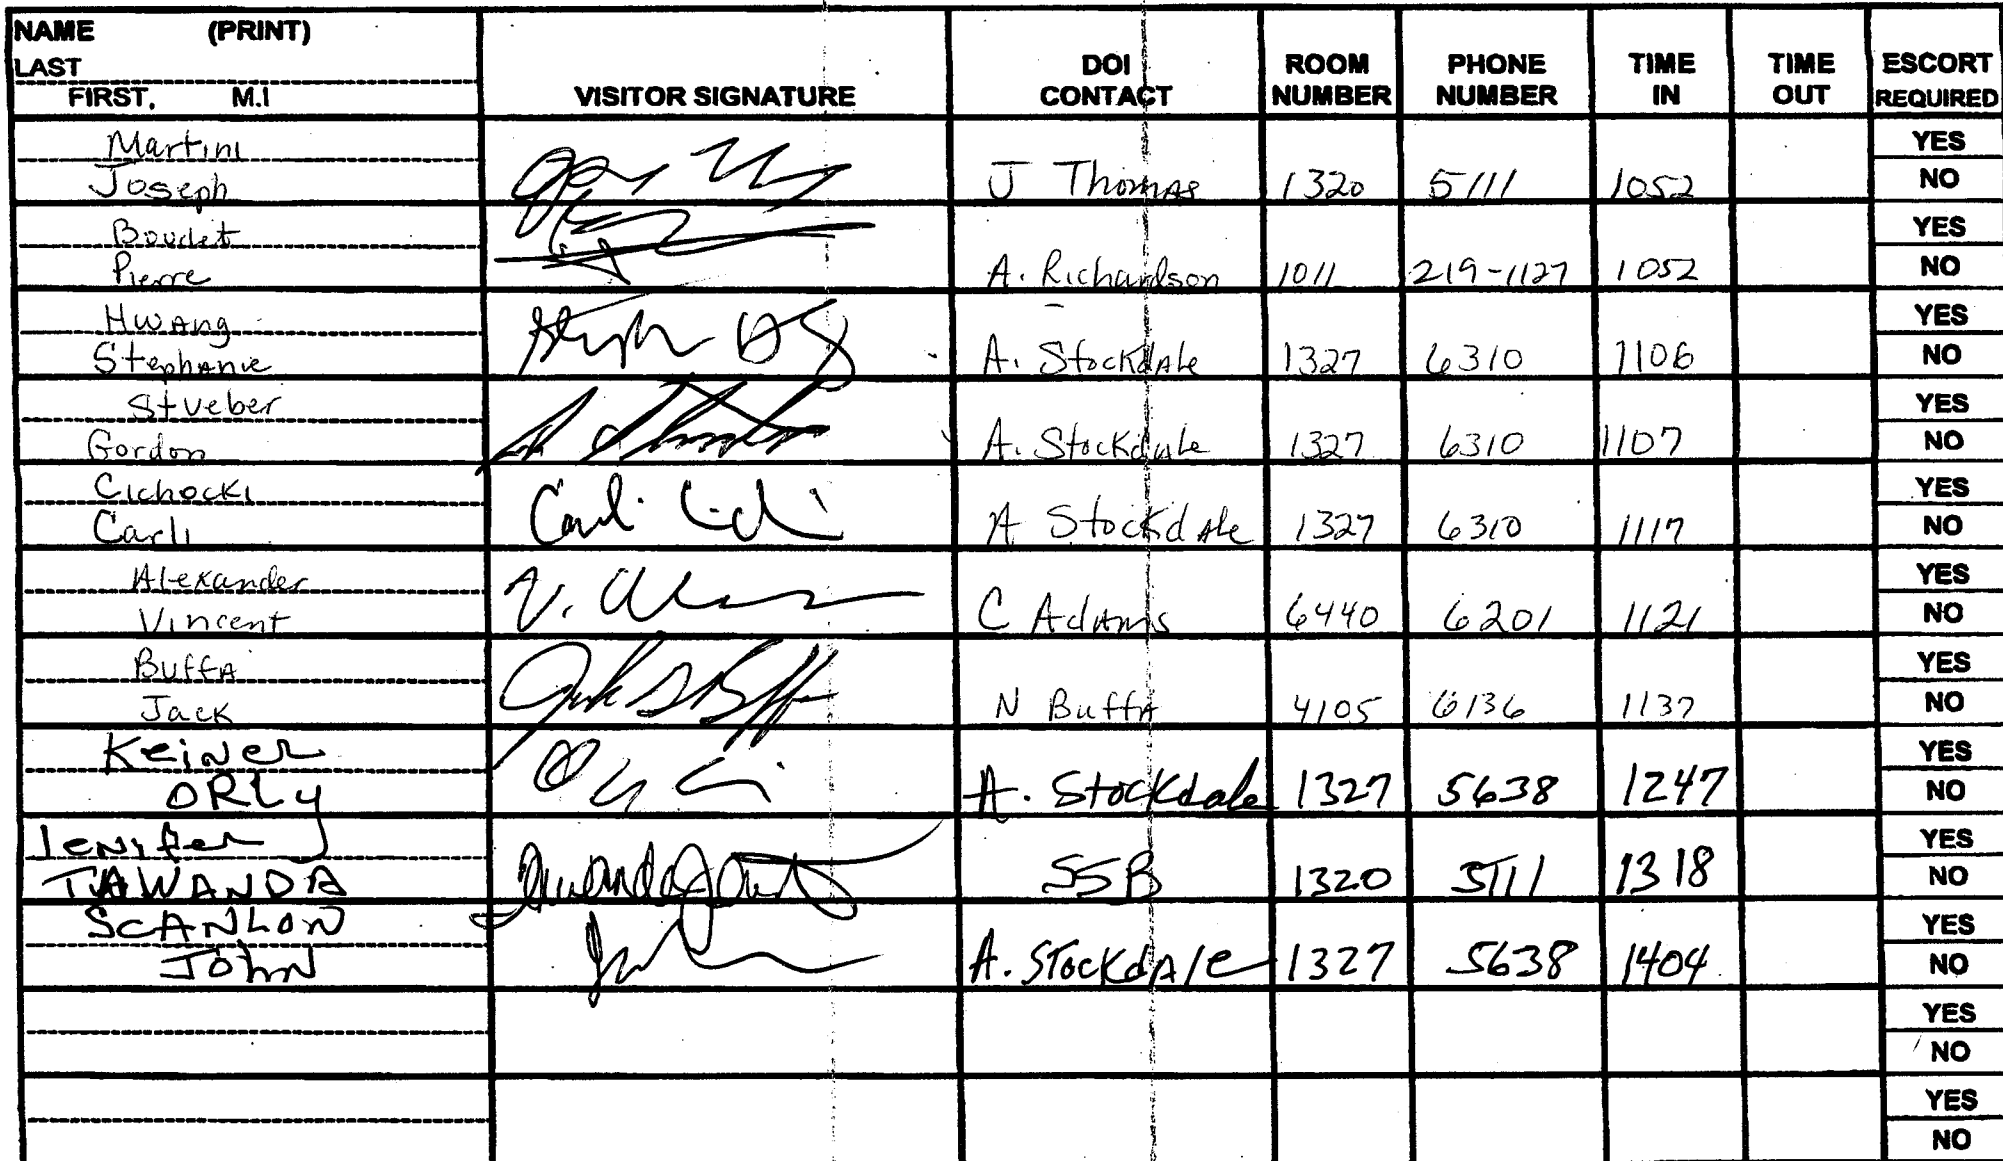 NAME (PRINT)
LAST
FIRST, M.I
VISITOR SIGNATURE
DOI CONTACT
ROOM NUMBER
PHONE NUMBER
TIME IN
TIME OUT
ESCORT REQUIRED
Martini YES
Joseph J Thomas 1320 5111 1052 NO
Boudet YES
Pierre A. Richardson 1011 219-1127 1052 NO
HwAng YES
StephAnie A. StockdAle 1327 6310 1106 NO
Stueber YES
Gordon A. Stockdale 1327 6310 1107 NO
Cichocki YES
Carli A StockdAle 1327 6310 1117 NO
Alexander YES
Vincent V. C AdAms 6440 6201 1121 NO
BuffA YES
Jack N BuffA 4105 6136 1137 NO
KeiNer YES
ORLy A. Stockdale 1327 5638 1247 NO
JeNifer YES
TAWANDA SSB 1320 5111 1318 NO
SCANLON YES
John A. STockdAle 1327 5638 1404 NO
YES
NO
YES
NO